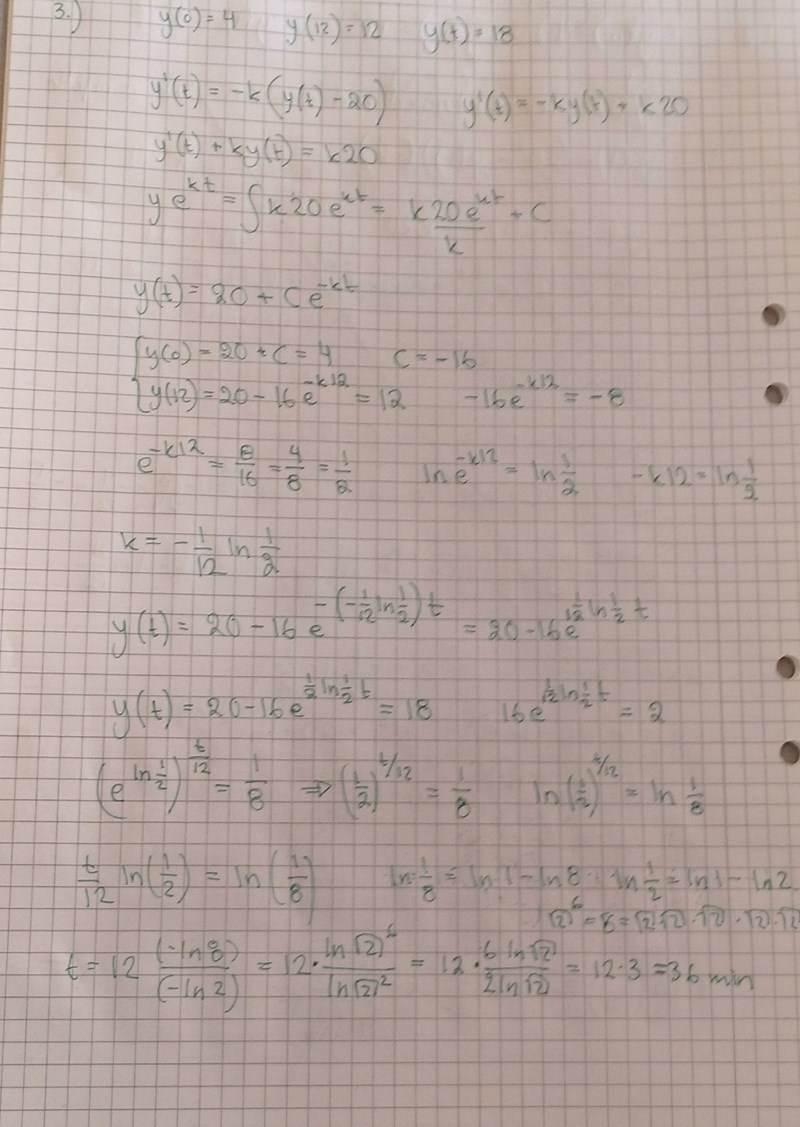 3.) y(0)=4 y(12)=12 y(t)=18
y'(t) = -k(y(t)-20) y'(t) = -ky(t) + k20
y'(t) + ky(t) = k20
ye^{kt} = ∫k20e^{kt} = \frac{k20e^{kt}}{k} + C
y(t) = 20 + Ce^{-kt}
{y(0) = 20 + C = 4 C = -16
{y(12) = 20 - 16e^{-k12} = 12 -16e^{-k12} = -8
e^{-k12} = \frac{8}{16} = \frac{4}{8} = \frac{1}{2} ln e^{-k12} = ln \frac{1}{2} -k12 = ln \frac{1}{2}
k = -\frac{1}{12} ln \frac{1}{2}
y(t) = 20 - 16e^{-(-\frac{1}{12} ln \frac{1}{2})t} = 20 - 16e^{\frac{1}{12} ln \frac{1}{2} t}
y(t) = 20 - 16e^{\frac{1}{12} ln \frac{1}{2} t} = 18 16e^{\frac{1}{12} ln \frac{1}{2} t} = 2
(e^{ln \frac{1}{2}})^{\frac{t}{12}} = \frac{1}{8} ⇒ (\frac{1}{2})^{t/12} = \frac{1}{8} ln(\frac{1}{2})^{t/12} = ln \frac{1}{8}
\frac{t}{12} ln(\frac{1}{2}) = ln(\frac{1}{8}) ln \frac{1}{8} = ln 1 - ln 8 ln \frac{1}{2} = ln 1 - ln 2
√2)^6 = 8 = √2 √2 · √2 · √2 · √2
t = 12 \frac{(-ln 8)}{(-ln 2)} = 12 · \frac{ln √2)^6}{ln √2)^2} = 12 · \frac{6 ln √2}{2 ln √2} = 12 · 3 = 36 min